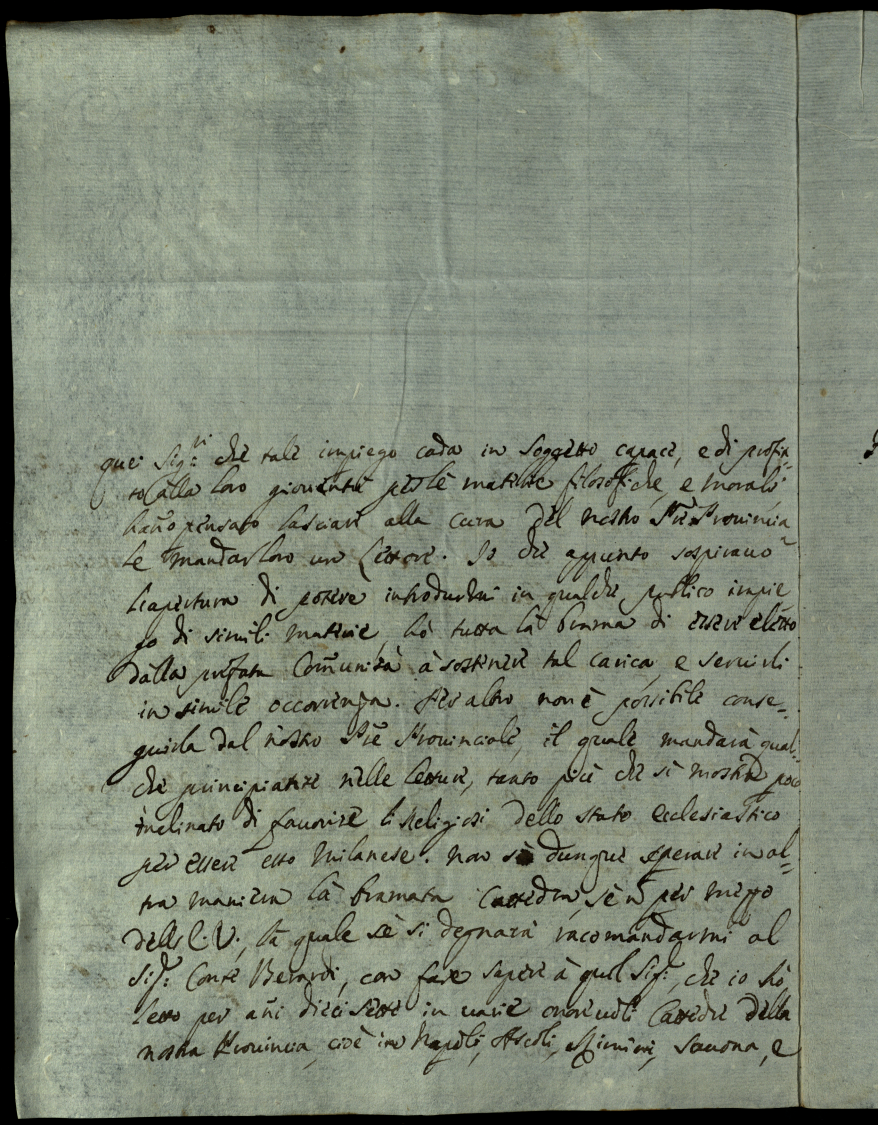 quei Sig:ri che tale impiego cada in Soggetto capace, e di profit-
to alla loro gioventù per le materie filosofiche, e morali
hañ pensato lasciare alla cura del nostro Prẽ Provincia
le mandar loro un Lettore. Io che appunto sospiravo
l'apertura di potere introdurmi in qualche publico impie
go di simili materie, hò tutta la brama di essere eletto
dalla prefata Com̃unità à sostenere tal carica, e servirli
in simile occorrenza. Per altro non è possibile conse-
guirla dal nostro Prẽ Provinciale, il quale mandarà qual-
che principiante nelle letture, tanto più che si mostra poco
inclinato di favorire li Religiosi dello stato ecclesiastico
per essere esso Milanese. Non sò dunque sperare in al-
tra maniera la bramata Cattedra, se ñ per mezzo
della S: V:, la quale se si degnarà racomandarmi al
Sig:r Conte Berardi, con fare sapere à quel Sig:r, che io hò
letto per añi diecisette in varie onorevoli Cattedre della
nostra Provincia, cioè in Napoli, Ascoli, Rimini, Savona, e